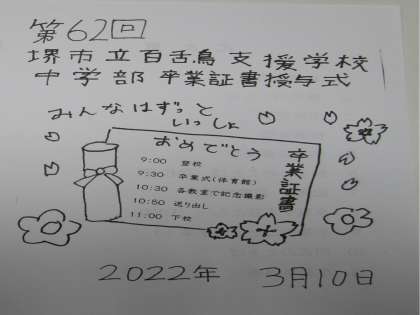 第62回
堺市立百舌鳥支援学校
中学部 卒業証書授与式
みんなはずっと
いっしょ
おめでとう
卒業証書
9:00 登校
9:30 卒業式(体育館)
10:30 各教室で記念撮影
10:50 送り出し
11:00 下校
2022年 3月10日